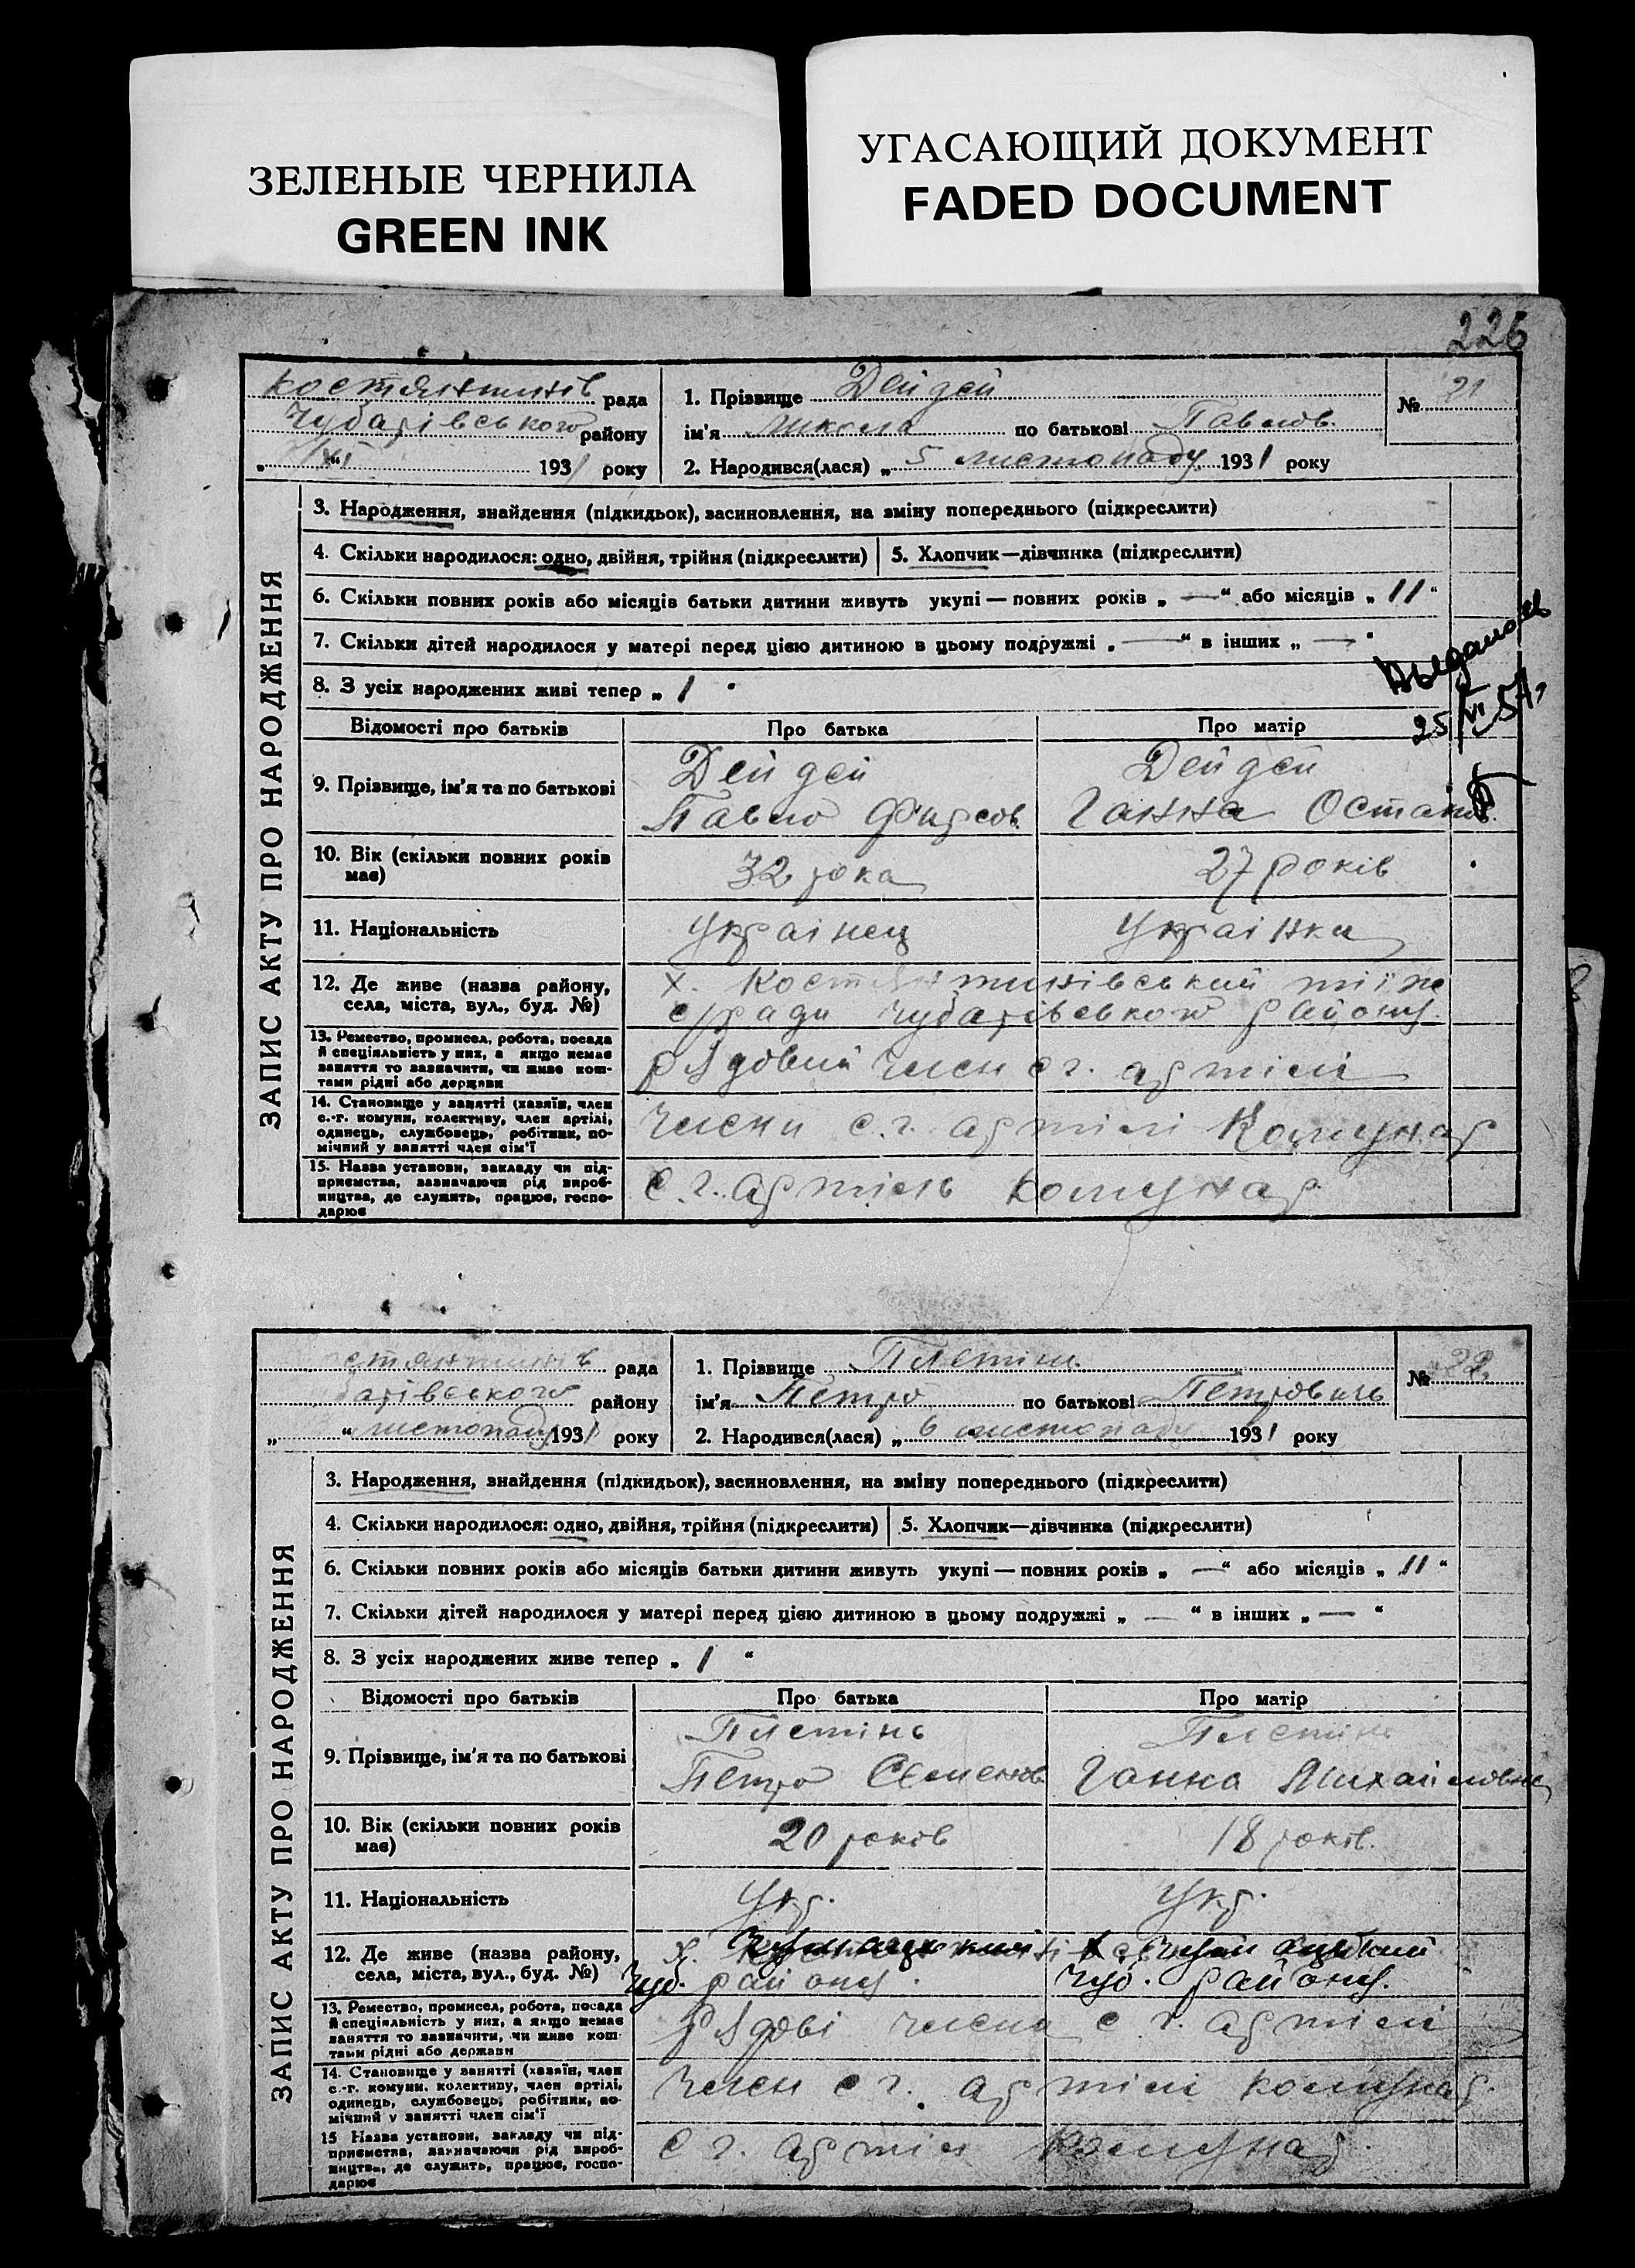 ЗЕЛЕНЫЕ ЧЕРНИЛА
GREEN INK
УГАСАЮЩИЙ ДОКУМЕНТ
FADED DOCUMENT
226
ЗАПИС АКТУ ПРО НАРОДЖЕННЯ
костянтинів рада
Чубарівського району
„ XI “ 1931 року
1. Прізвище Дейдей
ім'я Микола по батькові Павлов.
№ 21
2. Народився(лася) „ 5 листопаду 1931 року
3. Народження, знайдення (підкидьок), засиновлення, на зміну попереднього (підкреслити)
4. Скільки народилося: одно, двійня, трійня (підкреслити) 5. Хлопчик—дівчинка (підкреслити)
6. Скільки повних років або місяців батьки дитини живуть укупі — повних років „ — “ або місяців „ 11 “
7. Скільки дітей народилося у матері перед цією дитиною в цьому подружжі „ — “ в інших „ — “
8. З усіх народжених живі тепер „ 1 “
25/VI 57
Відомості про батьків Про батька Про матір
9. Прізвище, ім'я та по батькові
Дейдей
Павло
Дейдей
Ганна Остапов.
10. Вік (скільки повних років має)
32 рока
27 років
11. Національність
Українец
Українка
12. Де живе (назва району, села, міста, вул., буд. №)
х. Костянтинівський
с/ради Чубарівського району
13. Ремество, промисел, робота, посада й спеціяльність у них, а якщо немає заняття то зазначити, чи живе коштами рідні або держави
рядовий член с г. артілі
14. Становище у занятті (хазяїн, член с.-г. комуни, колективу, член артілі, одинець, службовець, робітник, помічний у занятті член сім'ї
члени с. г. артілі Комунар
15. Назва установи, закладу чи підприємства, зазначаючи рід виробництва, де служить, працює, господарює
с. г. артіль Комунар
ЗАПИС АКТУ ПРО НАРОДЖЕННЯ
стянтинів рада
барівського району
„ “ листопаду 1931 року
1. Прізвище Плетінь
ім'я Петро по батькові Петрович
№ 22
2. Народився(лася) „ 6 листопаду 1931 року
3. Народження, знайдення (підкидьок), засиновлення, на зміну попереднього (підкреслити)
4. Скільки народилося: одно, двійня, трійня (підкреслити) 5. Хлопчик—дівчинка (підкреслити)
6. Скільки повних років або місяців батьки дитини живуть укупі — повних років „ — “ або місяців „ 11 “
7. Скільки дітей народилося у матері перед цією дитиною в цьому подружжі „ — “ в інших „ — “
8. З усіх народжених живе тепер „ 1 “
Відомості про батьків Про батька Про матір
9. Прізвище, ім'я та по батькові
Плетінь
Петро Семенов
Плетінь
Ганна Михайловна
10. Вік (скільки повних років має)
20 років
18 років.
11. Національність
Укр.
Укр.
12. Де живе (назва району, села, міста, вул., буд. №)
Чуб. району.
Чуб. району.
13. Ремество, промисел, робота, посада й спеціяльність у них, а якщо немає заняття то зазначити, чи живе коштами рідні або держави
рядові члени с г. артілі
14. Становище у занятті (хазяїн, член с.-г. комуни, колективу, член артілі, одинець, службовець, робітник, помічний у занятті член сім'ї
члени с г. артілі комунар.
15 Назва установи, закладу чи підприємства, зазначаючи рід виробництва, де служить, працює, господарює
с г. артіл Комунар.